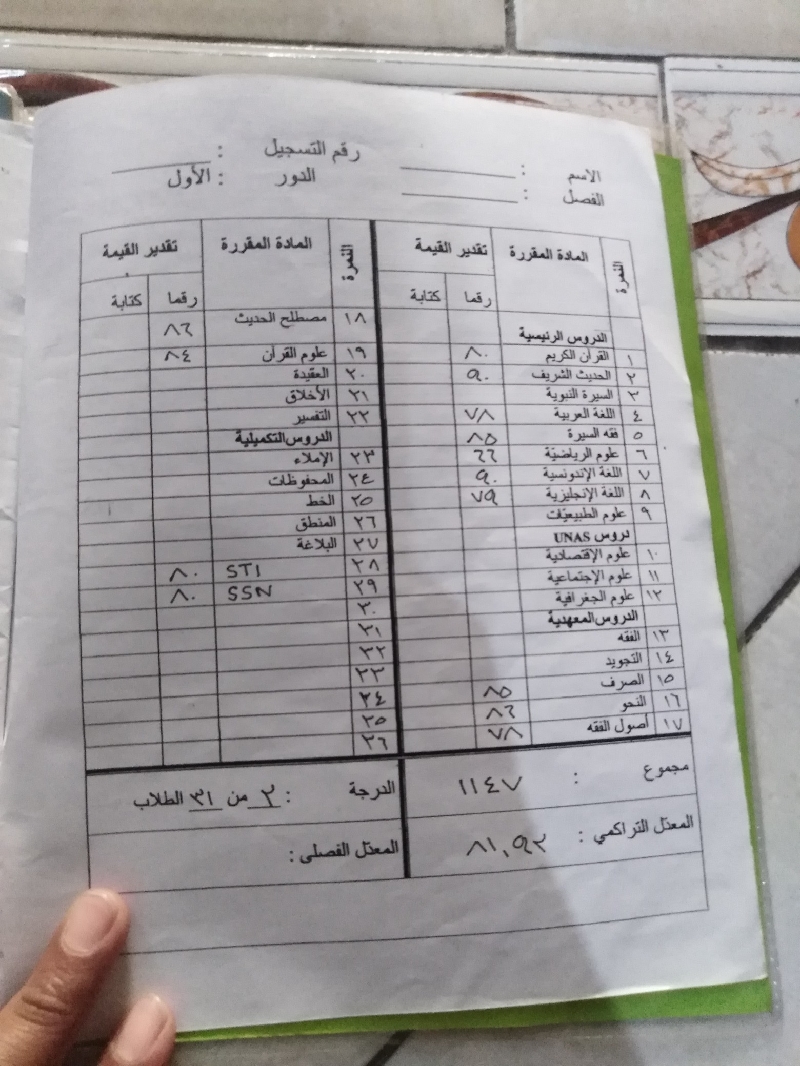 الاسم : رقم التسجيل :
الفصل : الدور : الأول
النمرة المادة المقررة تقدير القيمة
رقما كتابة
الدروس الرئيسية
١ القرأن الكريم ٨٠
٢ الحديث الشريف ٩٠
٣ السيرة النبوية
٤ اللغة العربية ٧٨
٥ فقه السيرة ٨٥
٦ علوم الرياضيّة ٦٦
٧ اللغة الإندونسية ٩٠
٨ اللغة الإنجليزية ٧٩
٩ علوم الطبيعيّات
دروس UNAS
١٠ علوم الإقتصادية
١١ علوم الإجتماعية
١٢ علوم الجغرافية
الدروس المعهدية
١٣ الفقه
١٤ التجويد
١٥ الصرف ٨٥
١٦ النحو ٨٦
١٧ أصول الفقه ٧٨
النمرة المادة المقررة تقدير القيمة
رقما كتابة
١٨ مصطلح الحديث ٨٦
١٩ علوم القرأن ٨٤
٢٠ العقيدة
٢١ الأخلاق
٢٢ التفسير
الدروس التكميلية
٢٣ الإملاء
٢٤ المحفوظات
٢٥ الخط
٢٦ المنطق
٢٧ البلاغة
٢٨ STI ٨٠
٢٩ SSN ٨٠
٣٠
٣١
٣٢
٣٣
٣٤
٣٥
٣٦
مجموع : ١١٤٧ الدرجة : ٢ من ٣١ الطلاب
المعدّل التراكمي : ٨١,٩٢ المعدّل الفصلى :